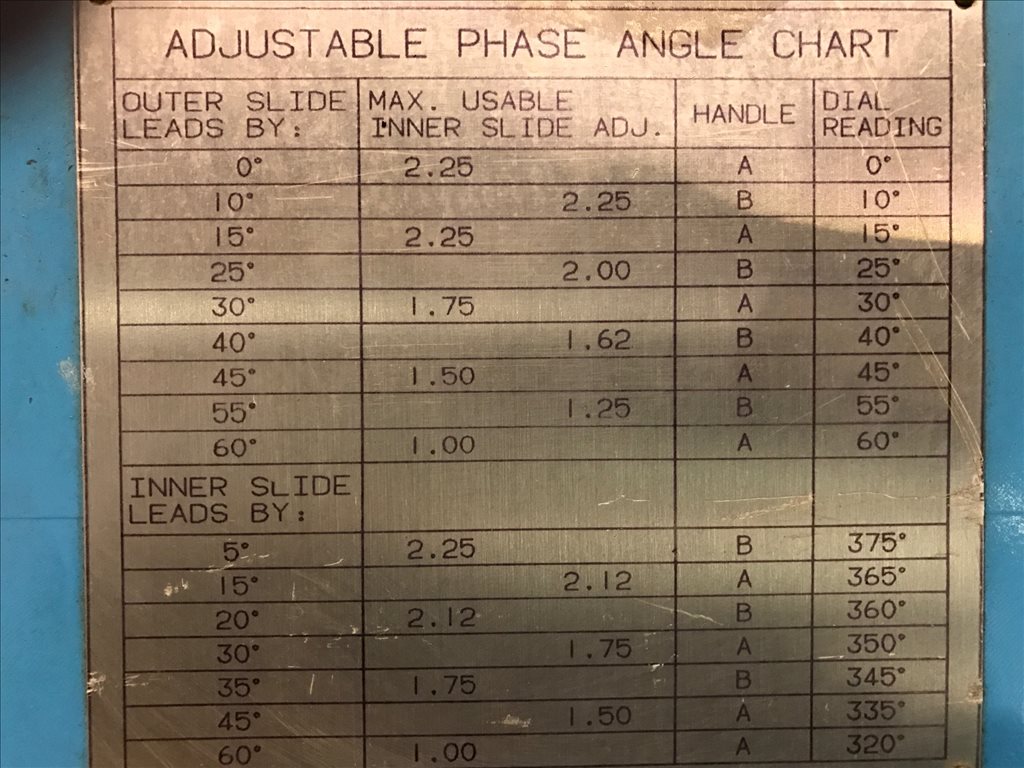 ADJUSTABLE PHASE ANGLE CHART
OUTER SLIDE LEADS BY: MAX. USABLE INNER SLIDE ADJ. HANDLE DIAL READING
0° 2.25 A 0°
10° 2.25 B 10°
15° 2.25 A 15°
25° 2.00 B 25°
30° 1.75 A 30°
40° 1.62 B 40°
45° 1.50 A 45°
55° 1.25 B 55°
60° 1.00 A 60°
INNER SLIDE
LEADS BY:
5° 2.25 B 375°
15° 2.12 A 365°
20° 2.12 B 360°
30° 1.75 A 350°
35° 1.75 B 345°
45° 1.50 A 335°
60° 1.00 A 320°